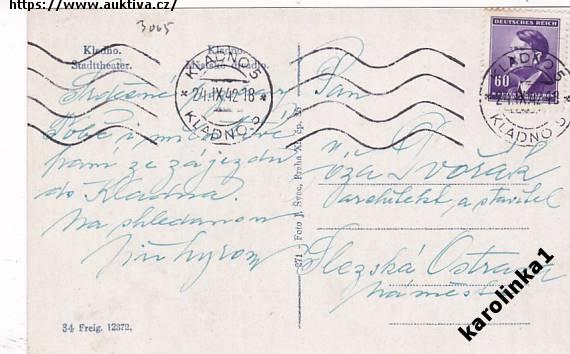 https://www.auktiva.cz/
3065
Kladno.
Stadttheater.
Kladno.
Městské divadlo.
KLADNO 5
24.IX.42-18
KLADNO 5
DEUTSCHES REICH
60
KLADNO 5
24.IX.42
KLADNO 5
Srdečné
Tobě i
pam ze zájezdu
do Kladna.
Na shledanou
Jiří
Pan
Dvořák
architekt a stavitel
Slezská Ostrava
náměstí
271 - Foto J. Švec, Praha XI., čp.
34 Freig. 12372,
karolinka1